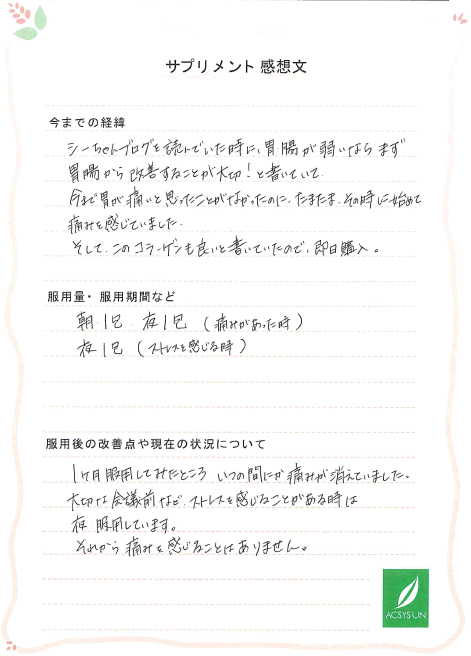 サプリメント 感想文
今までの経緯
シーちゃんブログを読んでいた時に、胃腸が弱いならまず
胃腸から改善することが大切！と書いていて、
今まで胃が痛いと思ったことがなかったのに、たまたま、その時に始めて
痛みを感じていました。
そして、このコラーゲンも良いと書いていたので、即日購入。
服用量・服用期間など
朝 1包 夜 1包 (痛みがあった時)
夜 1包 (ストレスを感じる時)
服用後の改善点や現在の状況について
1ヶ月服用してみたところ いつの間にか痛みが消えていました。
大切な会議前など、ストレスを感じることがある時は
夜 服用しています。
それから痛みを感じることはありません。
ACSYSUN